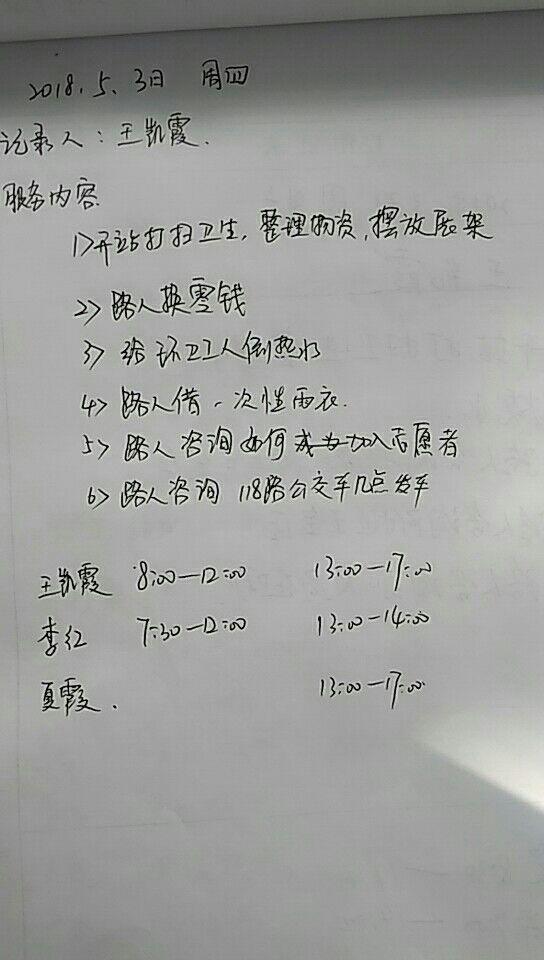 2018.5.3日 周四
记录人：王凯霞.
服务内容
1>开站打扫卫生,整理物资,摆放展架
2>路人换零钱
3>给环卫工人倒热水
4>路人借一次性雨衣.
5>路人咨询如何加入志愿者
6>路人咨询 118路公交车几点发车
王凯霞 8:00—12:00 13:00—17:00
李红 7:30—12:00 13:00—14:00
夏霞. 13:00—17:00